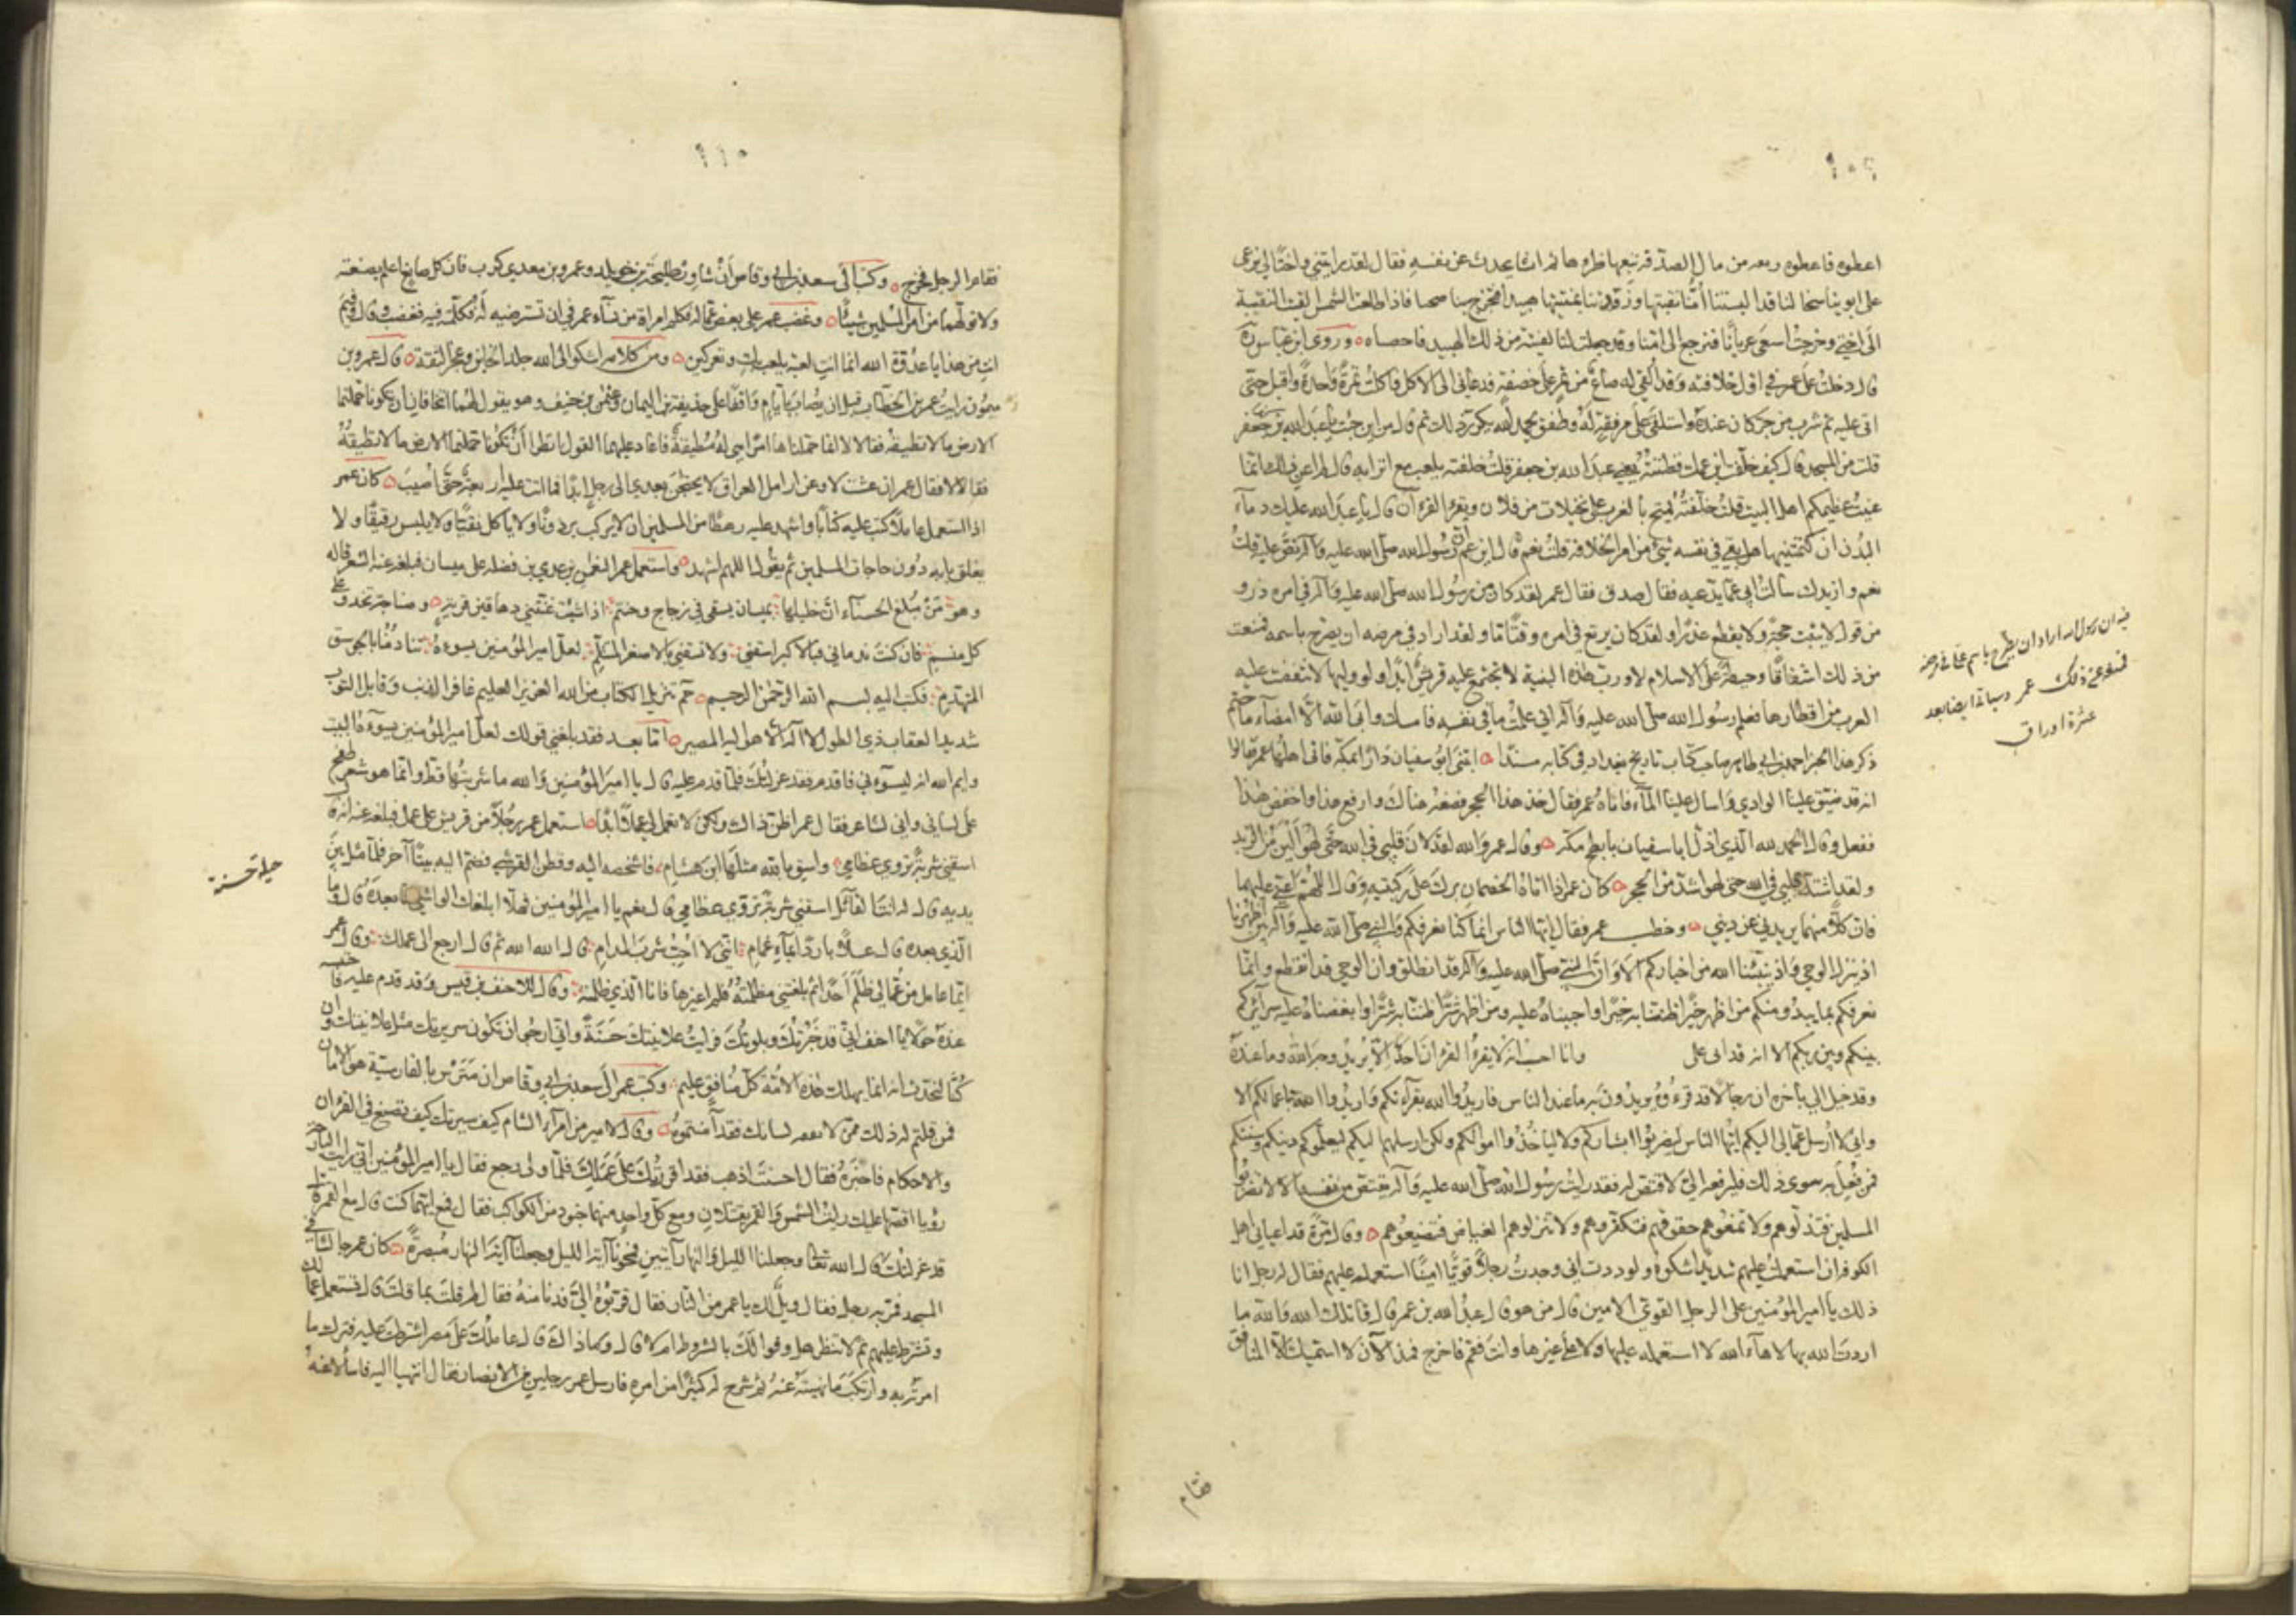 اعطوه فاعطوه ربعه من مال الصدقه تتبعها ظئراها ثم انشا يحدث عن نفسه فقال لقد رايتني واختا لي نرعى
على ابوينا ناضحا لنا قد البستنا امنا نقبتها وزودتنا
الى اختي وخرجت اسعى عريانا فنرجع الى امنا وقد جعلت لنا لفيتة من ذلك الهبيد وروى ابن عباس ره
قال دخلت على عمر في اول خلافته وقد القي له صاع من تمر على خصفة فدعاني الى الاكل فاكلت تمرة واحدة واقبل حتى
اتى عليه ثم شرب من جر كان عنده واستلقى على مرفقة له وطفق يحمد الله يكرر ذلك ثم قال من اين جئت يا عبد الله
قلت من المسجد قال كيف خلفت ابن عمك فظننته يعني عبد الله بن جعفر قلت خلفته يلعب مع اترابه قال لم اعن ذلك انما
عنيت عظيمكم اهل البيت قلت خلفته يمتح بالغرب على نخيلات من فلان ويقرء القرءان قال يا عبد الله عليك دماء
البدن ان كتمتنيها هل بقي في نفسه شيء من امر الخلافة قلت نعم قال ايزعم ان رسول الله صلى الله عليه وآله نص عليه قلت
نعم وازيدك سالت ابي عما يدعيه فقال صدق فقال عمر لقد كان من رسول الله صلى الله عليه وآله في امره ذرو
من قول لا يثبت حجة ولا يقطع عذرا ولقد كان يربع في امره وقتا ما ولقد اراد في مرضه ان يصرح باسمه فمنعت
من ذلك اشفاقا وحيطة على الاسلام لا ورب هذه البنية لا تجتمع عليه قريش ابدا ولو وليها لانتقضت عليه
العرب من اقطارها فعلم رسول الله صلى الله عليه وآله اني علمت ما في نفسه فامسك وابى الله الا امضاء ما حتم
ذكر هذا الخبر احمد بن ابي طاهر صاحب كتاب تاريخ بغداد في كتابه مسندا ابتنى ابو سفيان دارا بمكة فاتى اهلها عمر فقالوا
انه قد ضيق علينا الوادي واسال علينا الماء فاتاه عمر فقال خذ هذا الحجر فضعه هناك وارفع هذا واخفض هذا
ففعل وقال الحمد لله الذي اذل ابا سفيان بابطح مكة وقال عمر والله لقد لان قلبي في الله حتى لهو الين من الزبد
ولقد اشتد قلبي في الله حتى لهو اشد من الحجر كان عمر اذا اتاه الخصمان برك على ركبتيه وقال اللهم اعني عليهما
فان كلا منهما يريدني عن ديني وخطب عمر فقال ايها الناس انما كنا نعرفكم والنبي صلى الله عليه وآله بين اظهرنا
اذ ينزل الوحي واذ ينبئنا الله من اخباركم الا وان النبي صلى الله عليه وآله قد انطلق وان الوحي قد انقطع وانما
نعرفكم بما يبدو منكم من اظهر خيرا ظننا به خيرا واحببناه عليه ومن اظهر شرا ظننا به شرا وابغضناه عليه سرائركم
بينكم وبين ربكم الا انه قد اتى علي وانا احسب انه لا يقرء القرءان احد الا يريد وجه الله وما عنده
وقد خيل الي باخره ان رجالا قد قرءوه يريدون به ما عند الناس فاريدوا الله بقرآءتكم واريدوا الله باعمالكم الا
واني لا ارسل عمالي اليكم ايها الناس ليضربوا ابشاركم ولا لياخذوا اموالكم ولكن ارسلهم اليكم ليعلموكم دينكم وسنتكم
فمن فعل به سوى ذلك فليرفعه الي لاقتص له فقد رايت رسول الله صلى الله عليه وآله يقتص من نفسه الا لا تضربوا
المسلمين فتذلوهم ولا تمنعوهم حقوقهم فتكفروهم ولا تنزلوهم الغياض فتضيعوهم وقال مرة قد اعياني اهل
الكوفه ان استعملت عليهم لينا استضعفوه وان استعملت عليهم شديدا شكوه ولوددت اني وجدت رجلا قويا امينا استعمله عليهم فقال له رجل انا
ذلك يا امير المؤمنين على الرجل القوي الامين قال من هو قال عبد الله بن عمر قال قاتلك الله والله ما
اردت الله بها لاهاء الله لا استعمله عليها ولا على غيرها وانت فقم فاخرج فمذ الان لا اسميك الا المنافق
فيه ان رسول الله اراد ان يصرح باسم علي في مرضه
فمنعه عن ذلك عمر وسياتي ايضا بعد
عشرة اوراق
فقام
١١٠
فقام الرجل فخرج وكتب الى سعد بن ابي وقاص ان شاور طليحة بن خويلد وعمرو بن معدي كرب فان كل صانع اعلم بصنعته
ولا تولهما من امر المسلمين شيئا وغضب عمر على بعض عماله فكلم امراة من نسآء عمر في ان تسترضيه له فكلمته فيه فغضب وقال وفيم
انت من هذا يا عدوة الله انما انت لعبة يلعب بك وتفركين ومن كلامه اشكو الى الله جلد الخائن وعجز الثقة قال عمرو بن
ميمون رايت عمر بن الخطاب قبل ان يصاب بايام واقفا على حذيفة بن اليمان وعثمن بن حنيف وهو يقول لهما اتخافان ان تكونا حملتما
الارض ما لا تطيقه فقالا لا انما حملناها امرا هي له مطيقة فاعاد عليهما القول انظرا ان تكونا حملتما الارض ما لا تطيقه
فقالا لا فقال عمر ان عشت لادعن ارامل العراق لا يحتجن بعدي الى رجل ابدا فما اتت عليه رابعة حتى اصيب كان عمر
اذا استعمل عاملا كتب عليه كتابا واشهد عليه رهطا من المسلمين ان لا يركب برذونا ولا ياكل نقيا ولا يلبس رقيقا ولا
يغلق بابه دون حاجات المسلمين ثم يقول اللهم اشهد واستعمل عمر النعمن بن عدي بن نضله على ميسان فبلغه عنه الشعر قاله
وهو من مبلغ الحسنآء ان خليلها بميسان يسقى في زجاج وحنتم اذا شئت غنتني دهاقين قرية وصناجة تحدو على
كل منسم فان كنت ندماني فبالاكبر اسقني ولا تسقني بالاصغر المتثلم لعل امير المؤمنين يسوءه تنادمنا بالجوسق
المتهدم فكتب اليه بسم الله الرحمن الرحيم حم تنزيل الكتاب من الله العزيز العليم غافر الذنب وقابل التوب
شديد العقاب ذي الطول لا اله الا هو اليه المصير اما بعد فقد بلغني قولك لعل امير المؤمنين يسوءه البيت
وايم الله انه ليسوءني فاقدم فقد عزلتك فلما قدم عليه قال يا امير المؤمنين والله ما شربتها قط وانما هو شعر طفح
على لساني واني لشاعر فقال عمر اظن ذاك ولكن لا تعمل لي عملا ابدا استعمل عمر رجلا من قريش على عمل فبلغه عنه انه قال
اسقني شربة تروي عظامي واسق بالله مثلها ابن هشام فاشخصه اليه وفطن القرشي فضم اليه بيتا آخر فلما مثل بين
يديه قال له انت القائل اسقني شربة تروي عظامي قال نعم يا امير المؤمنين فهلا ابلغك الواشي ما بعده قال وما
الذي بعده قال عسلا باردا بماء غمام انني لا احب شرب المدام قال الله الله ثم قال ارجع الى عملك وقال عمر
ايما عامل من عمالي ظلم احدا ثم بلغتني مظلمته فلم اغيرها فانا الذي ظلمته وقال للاحنف بن قيس وقد قدم عليه فاحتبسه
عنده حولا يا احنف اني قد خبرتك وبلوتك فرايت علانيتك حسنة واني ارجو ان تكون سريرتك مثل علانيتك وان
كنا لنحدث انه انما يهلك هذه الامة كل منافق عليم وكتب عمر الى سعد بن ابي وقاص ان مترس بالفارسية هو الامان
فمن قلتم له ذلك ممن لا يفقه لسانك فقد آمنتموه وقال لامير من امرآء الشام كيف سيرتك كيف تصنع في القرءان
والاحكام فاخبره فقال احسنت اذهب فقد اقررتك على عملك فلما ولى رجع فقال يا امير المؤمنين اني رايت البارحة
رؤيا اقصها عليك رايت الشمس والقمر يقتتلان ومع كل واحد منهما جنود من الكواكب فقال فمع ايهما كنت قال مع القمر قال
قد عزلتك قال الله تعالى وجعلنا الليل والنهار آيتين فمحونا آية الليل وجعلنا آية النهار مبصرة كان عمر جالسا في
المسجد فمر به رجل فقال ويل لك يا عمر من النار فقال قربوه الي فدنا منه فقال لم قلت لي ما قلت قال تستعمل عمالك
وتشترط عليهم ثم لا تنظر هل وفوا لك بالشروط ام لا قال وما ذاك قال عاملك على مصر اشترطت عليه فترك ما
امرته به وارتكب ما نهيته عنه ثم شرح له كثيرا من امره فارسل عمر رجلين من الانصار فقال انتهيا اليه فاسالا عنه
حيلة حسنة